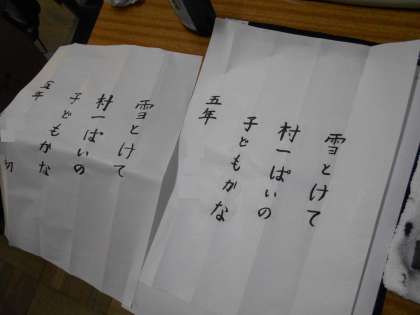 雪とけて
村一ぱいの
子どもかな
五年
雪とけて
村一ぱいの
子どもかな
五年